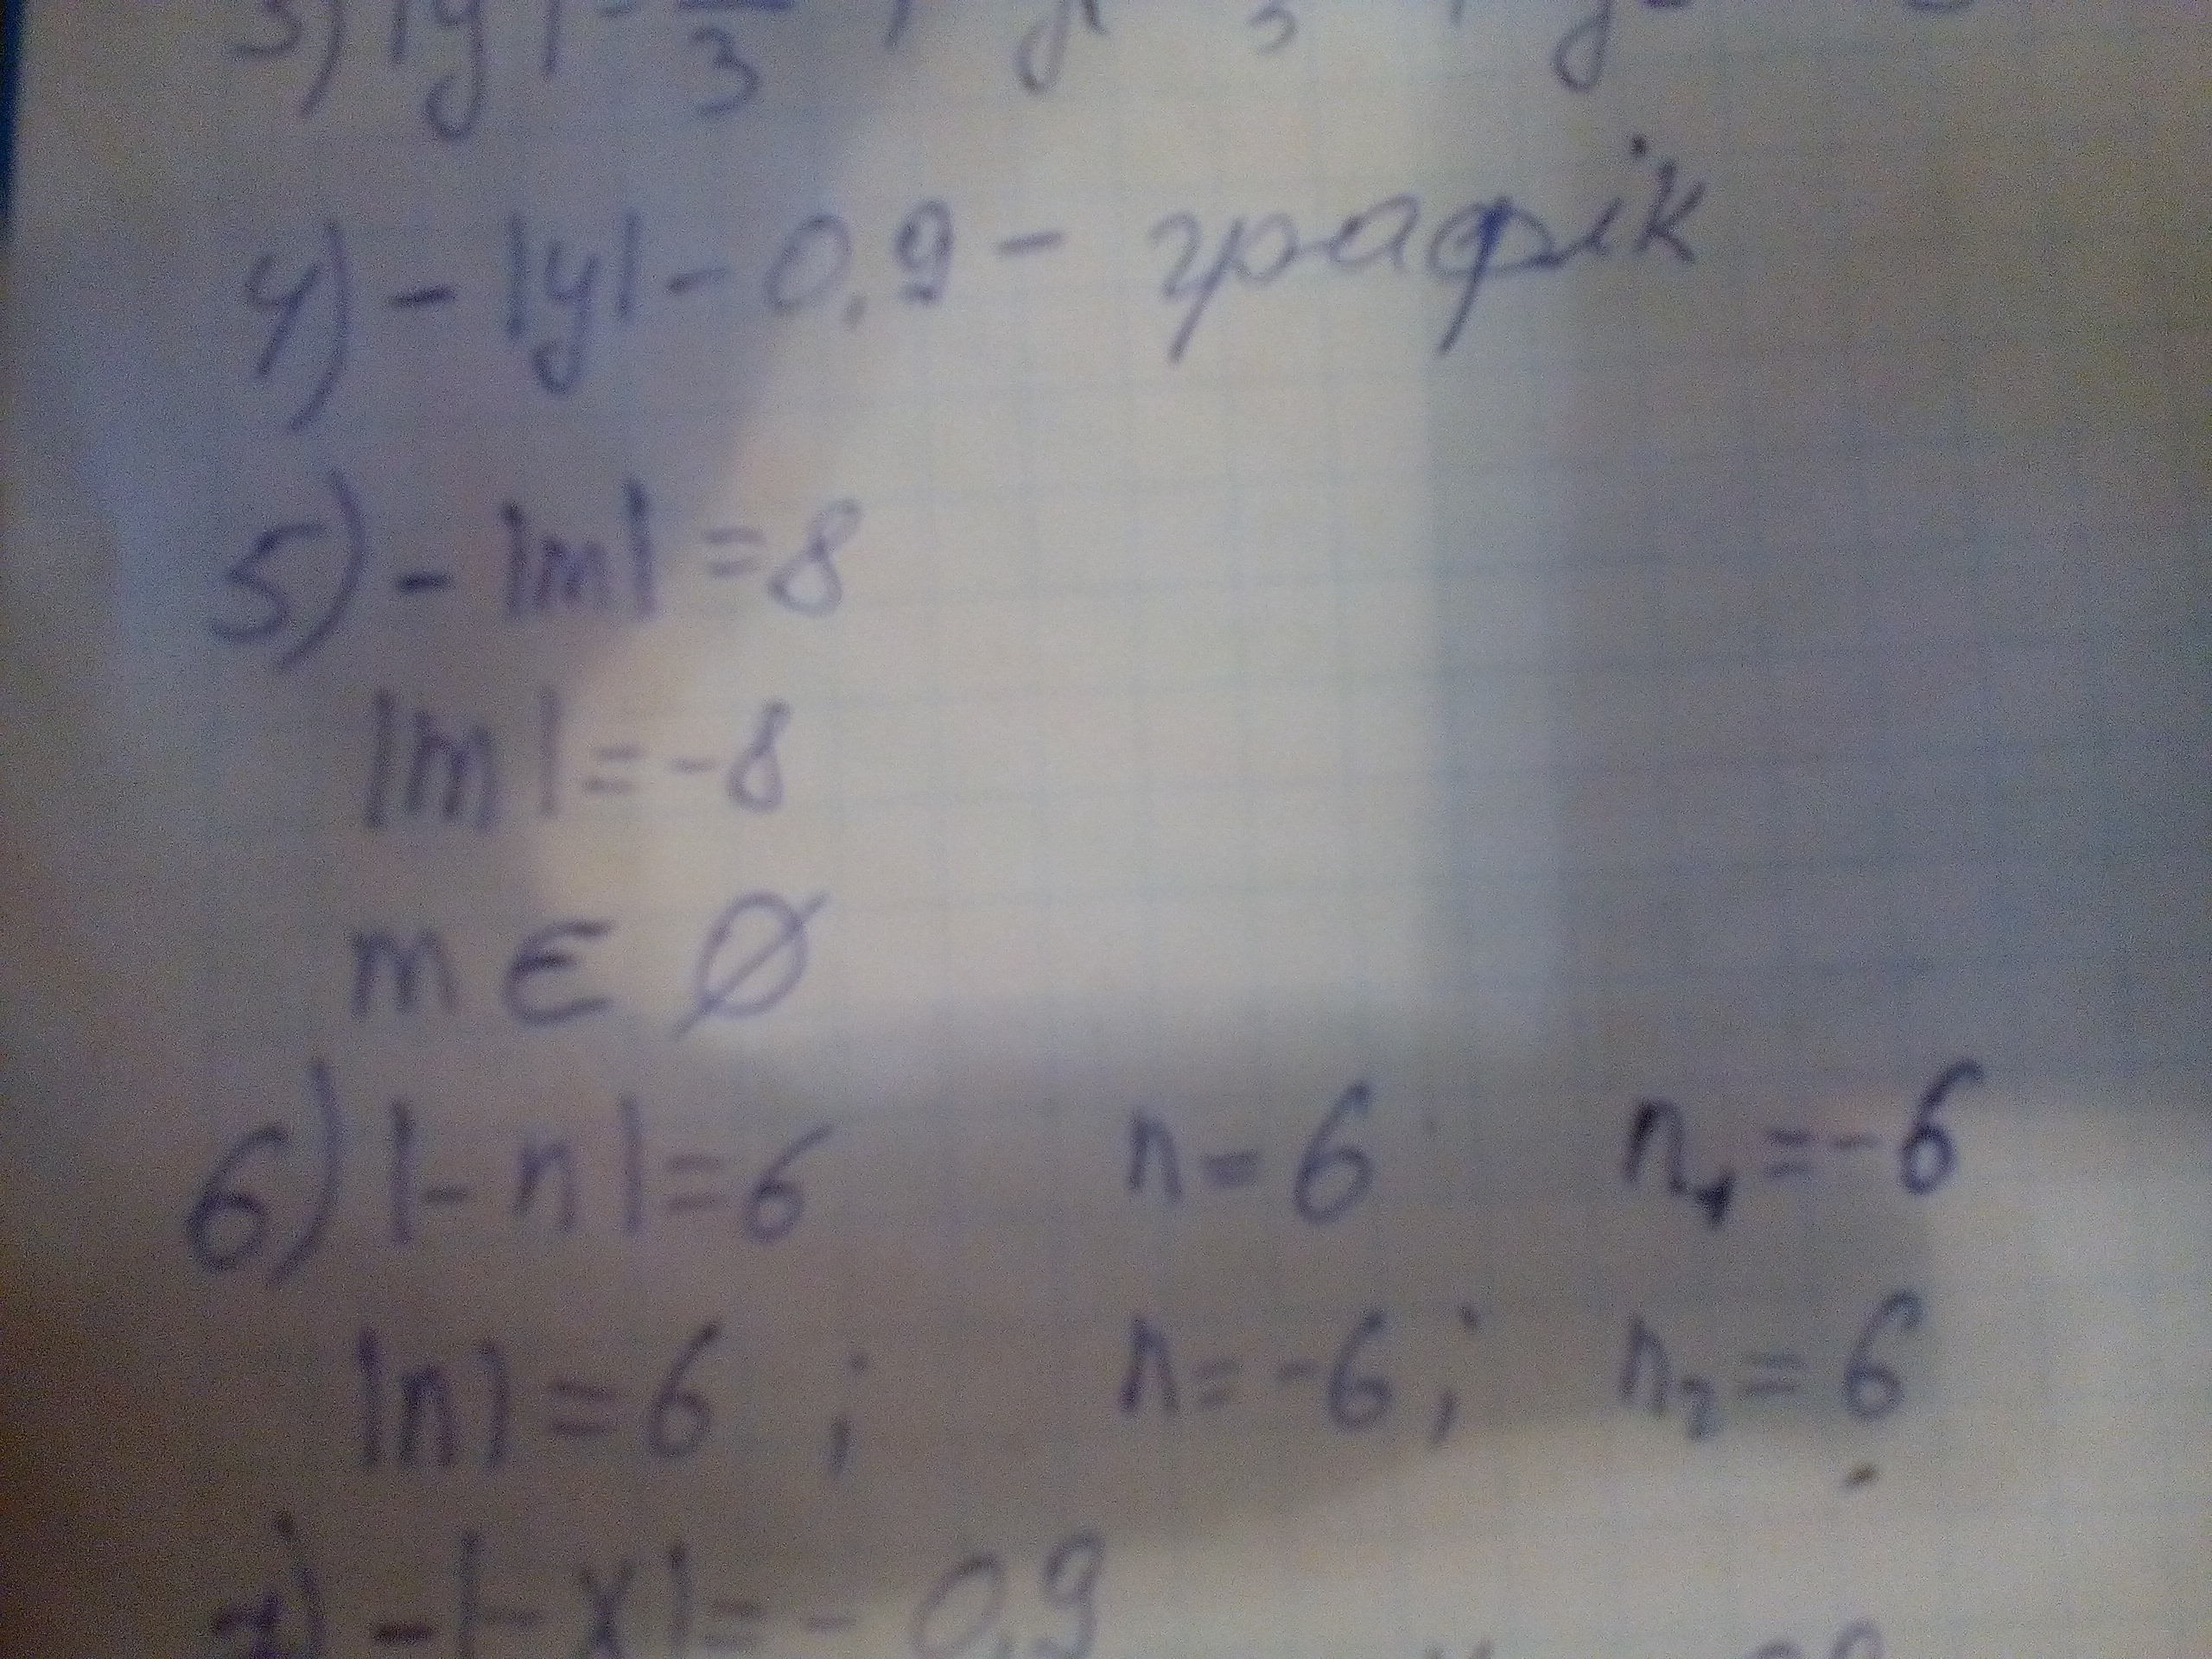 3) |y| = 3
4) - |y| - 0,9 - графік
5) - |m| = 8
|m| = -8
m ∈ ∅
6) |-n| = 6 n = 6 n₁ = -6
|n| = 6 ; n = -6 ; n₂ = 6
7) - |-x| = - 0,9